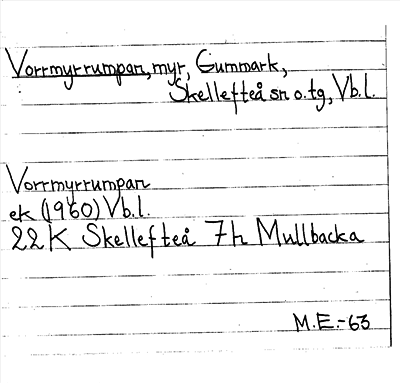 Vorrmyrrumpan, myr, Gummark,
Skellefteå sn o. tg, Vb.l.
Vorrmyrrumpan
ek (1960) Vb.l.
22K Skellefteå 7h Mullbacka
M.E.-63